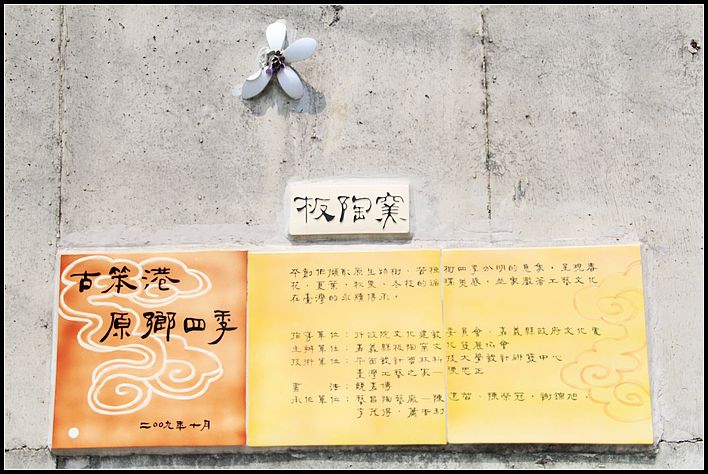 板陶窯
古笨港
原鄉四季
二〇〇九年十月
本創作擷取原生動樹、苦楝樹四季分明的意象，呈現春
花、夏葉、秋果、冬枝的璀璨美感，並象徵著工藝文化
在臺灣的永續傳承。
指導單位：行政院文化建設委員會、嘉義縣政府文化處
主辦單位：嘉義縣板陶窯文化發展協會
技術單位：平面設計雲林科技大學設計研發中心
臺灣工藝之家—陳忠正
書 法：魏嘉傳
承作單位：藝昌陶藝廠—陳進智、陳榮冠、謝錦旭、
李茂得、蕭香利